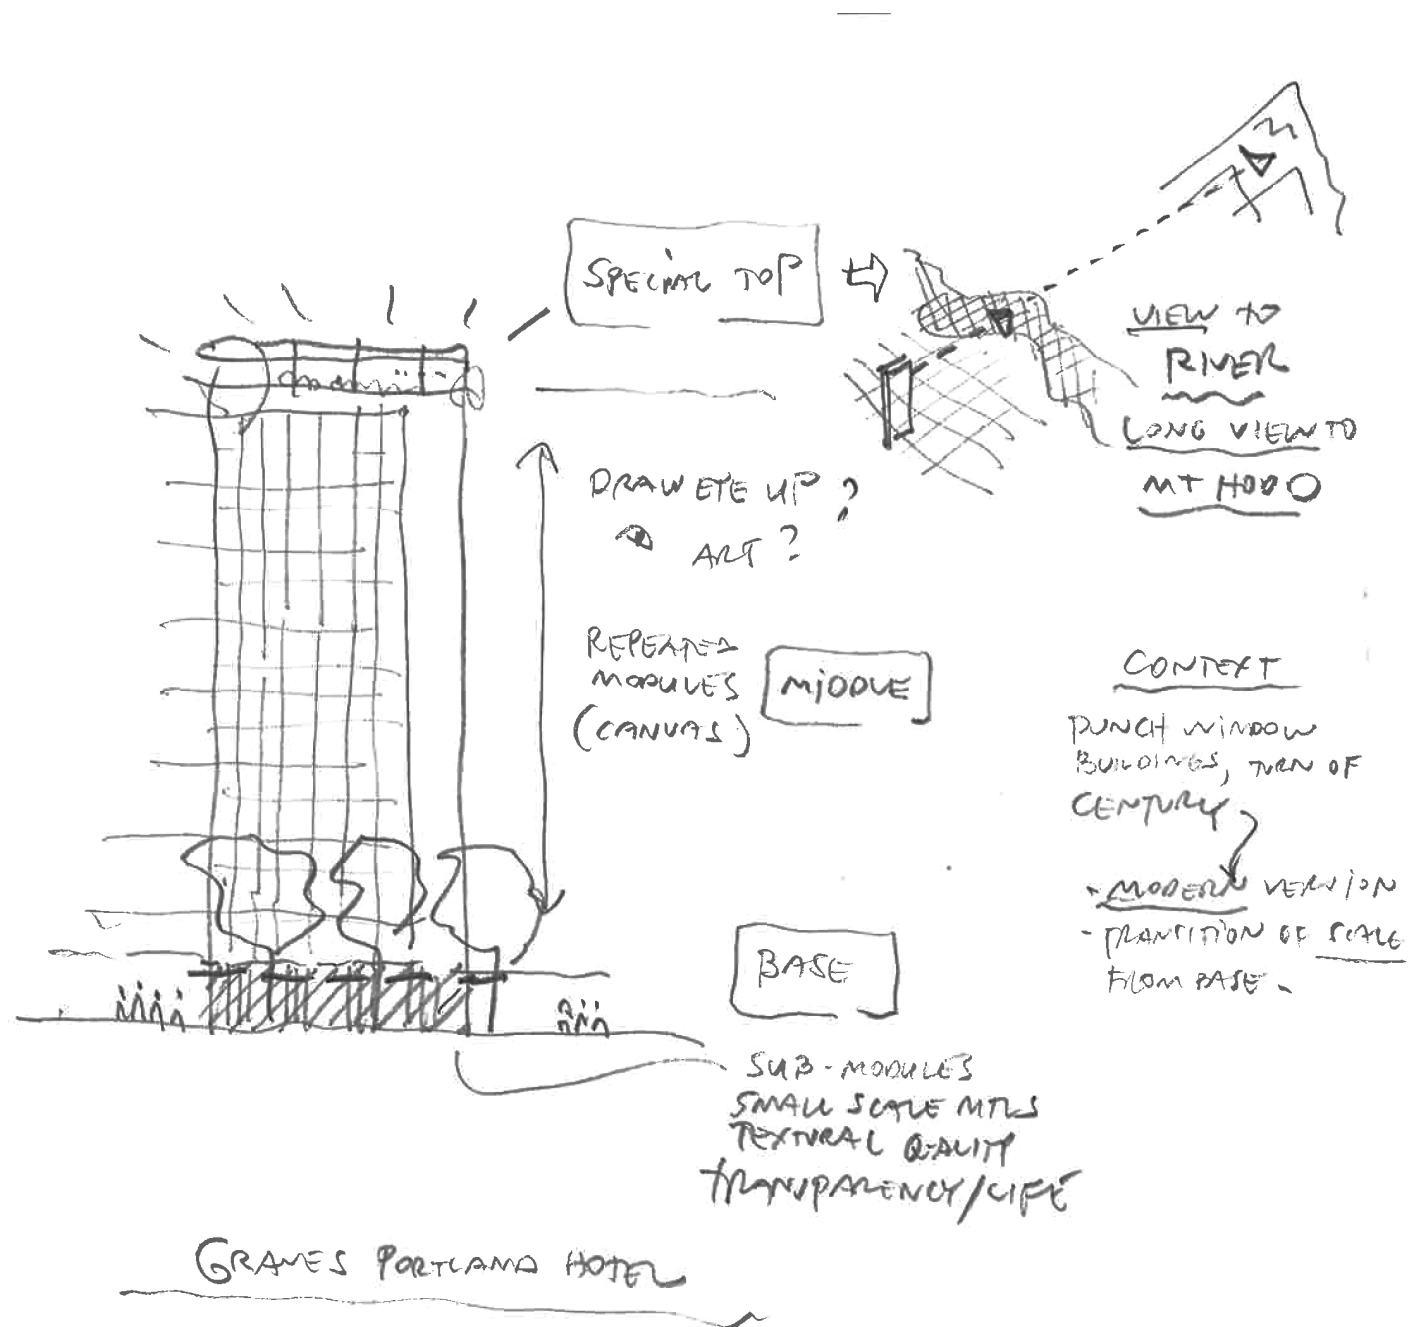 SPECIAL TOP
VIEW TO
RIVER
LONG VIEW TO
MT HOOD
DRAW EYE UP?
ART?
REPEATED
MODULES
(CANVAS)
MIDDLE
CONTEXT
PUNCH WINDOW
BUILDINGS, TURN OF
CENTURY
- MODERN VERSION
- TRANSITION OF SCALE
FROM BASE.
BASE
SUB-MODULES
SMALL SCALE MTLS
TEXTURAL QUALITY
TRANSPARENCY/LIFE
GRAVES PORTLAND HOTEL